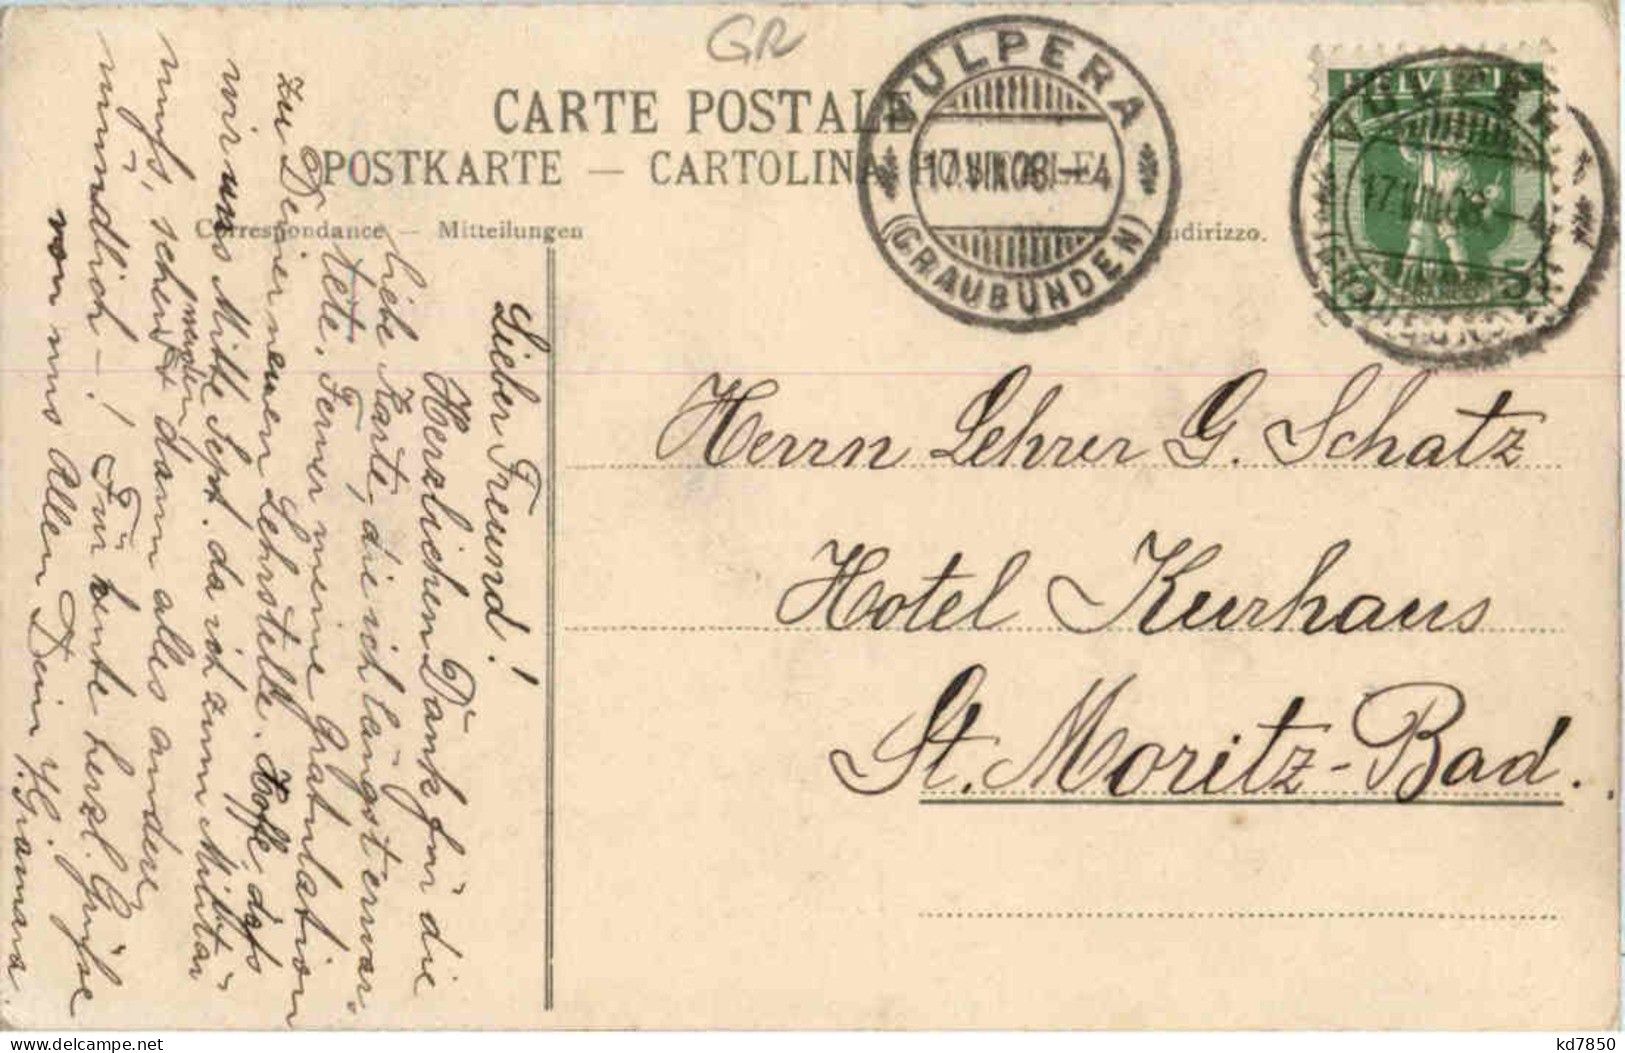 GR
CARTE POSTALE
POSTKARTE — CARTOLINA POSTALE
Correspondance — Mitteilungen
indirizzo.
VULPERA
17.VIII.08.–4
(GRAUBÜNDEN)
HELVETIA
5
VULPERA
17.VIII.08.–4
Lieber Freund!
Herzlichen Dank für die
liebe Karte, die ich längst erwar-
tete. Ferner meine Gratulation
zu Deiner neuen Lehrstelle. Hoffe, dass
wir uns Mitte Sept. da ich zum Militär
muss, sehen werden & dann alles andere
mündlich –! Für heute herzl. Grüsse
von uns Allen Dein
Herrn Lehrer G. Schatz
Hotel Kurhaus
St. Moritz-Bad.
kd7850